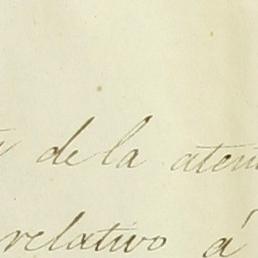 de la aten
relativo á